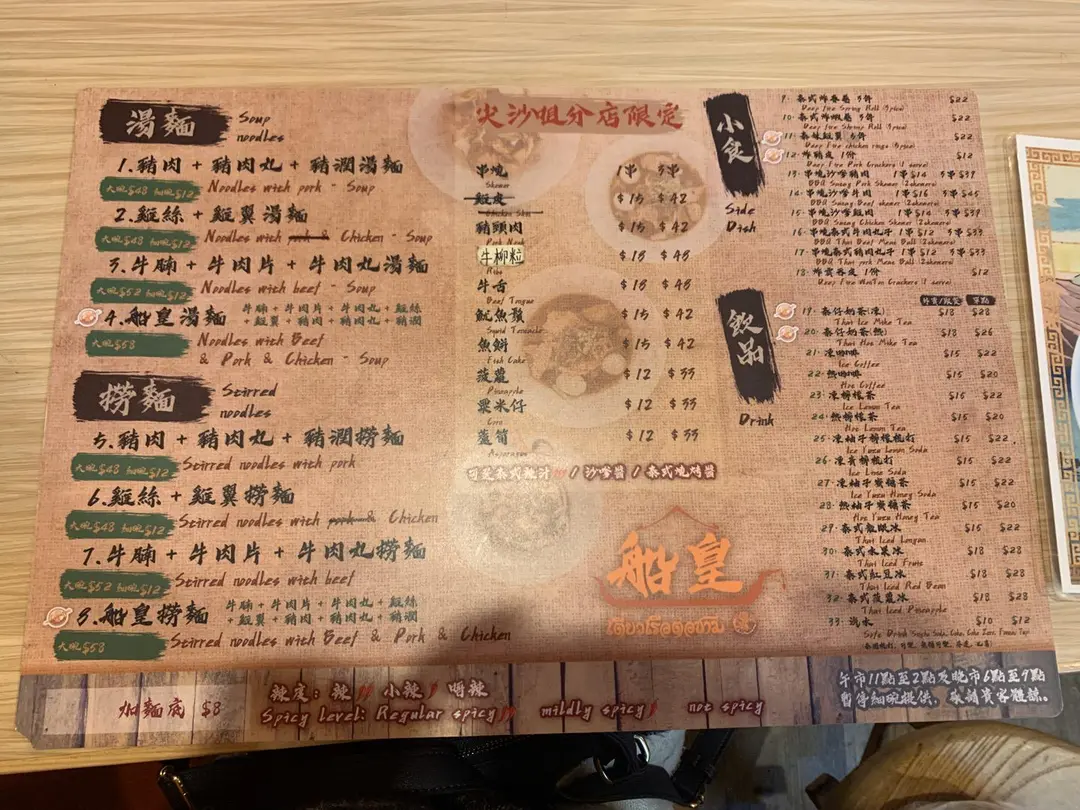 湯麵
Soup
noodles
1.豬肉 + 豬肉丸 + 豬潤湯麵
大碗$48 細碗$12
Noodles with pork - Soup
2.雞絲 + 雞翼湯麵
大碗$48 細碗$12
Noodles with pork & Chicken - Soup
3.牛腩 + 牛肉片 + 牛肉丸湯麵
大碗$52 細碗$12
Noodles with beef - Soup
4.船皇湯麵
牛腩 + 牛肉片 + 牛肉丸 + 雞絲
+ 雞翼 + 豬肉 + 豬肉丸 + 豬潤
大碗$58
Noodles with Beef
& Pork & Chicken - Soup
撈麵
Stirred
noodles
5.豬肉 + 豬肉丸 + 豬潤撈麵
大碗$48 細碗$12
Stirred noodles with pork
6.雞絲 + 雞翼撈麵
大碗$48 細碗$12
Stirred noodles with pork & Chicken
7.牛腩 + 牛肉片 + 牛肉丸撈麵
大碗$52 細碗$12
Stirred noodles with beef
8.船皇撈麵
牛腩 + 牛肉片 + 牛肉丸 + 雞絲
+ 雞翼 + 豬肉 + 豬肉丸 + 豬潤
大碗$58
Stirred noodles with Beef & Pork & Chicken
尖沙咀分店限定
串燒 1串 3串
Skewer
雞皮 $15 $42
Chicken Skin
豬頸肉 $15 $42
Pork Neck
牛柳粒 $18 $48
Ribs
牛舌 $18 $48
Beef Tongue
魷魚鬚 $15 $42
Squid Tentacles
魚餅 $15 $42
Fish Cake
菠蘿 $12 $33
Pineapple
粟米仔 $12 $33
Corn
蘆筍 $12 $33
Asparagus
/ 沙嗲醬 / 泰式燒烤醬
船皇
小食
Side
Dish
9. 泰式炸春卷 5件 $22
Deep Fire Spring Roll
10. 泰式炸蝦卷 5件 $22
Deep Fire Shrimp Roll
11. 泰味雞翼 5件 $22
Deep Fire chicken wings
12. 炸豬皮 1份 $12
Deep Fire Pork Crackers (1 serve)
13. 串燒沙嗲豬肉 1串$14 3串$39
BBQ Satay Pork Skewer
14. 串燒沙嗲牛肉 1串$16 3串$45
BBQ Satay Beef Skewer
15. 串燒沙嗲雞肉 1串$14 3串$39
BBQ Satay Chicken Skewer
16. 串燒泰式牛肉丸子 1串$12 3串$33
BBQ Thai Beef Meat Ball
17. 串燒泰式豬肉丸子 1串$12 3串$33
BBQ Thai pork Meat Ball
18. 炸雲吞皮 1份 $12
Deep Fire WonTon Crackers (1 serve)
飲品
Drink
外賣/跟餐 單點
19. 泰仔奶茶(凍) $18 $28
Thai Ice Milk Tea
20. 泰仔奶茶(熱) $18 $26
Thai Hot Milk Tea
21. 凍咖啡 $15 $22
Ice Coffee
22. 熱咖啡 $15 $20
Hot Coffee
23. 凍檸檬茶 $15 $22
Ice Lemon Tea
24. 熱檸檬茶 $15 $20
Hot Lemon Tea
25. 凍柚子檸檬梳打 $15 $22
Ice Yuzu Lemon Soda
26. 凍青檸梳打 $15 $22
Ice Lime Soda
27. 凍柚子蜜糖茶 $15 $22
Ice Yuzu Honey Soda
28. 熱柚子蜜糖茶 $15 $20
Hot Yuzu Honey Tea
29. 泰式龍眼冰 $15 $22
Thai Iced Longan
30. 泰式水果冰 $18 $28
Thai Iced Fruit
31. 泰式紅豆冰 $18 $28
Thai Iced Red Bean
32. 泰式菠蘿冰 $18 $28
Thai Iced Pineapple
33. 汽水 $10 $12
加麵底 $8
辣度: 辣 小辣 唔辣
Spicy Level: Regular spicy mildly spicy not spicy
午市11點至2點及晚市6點至9點
暫停細碗提供，敬請貴客體諒。